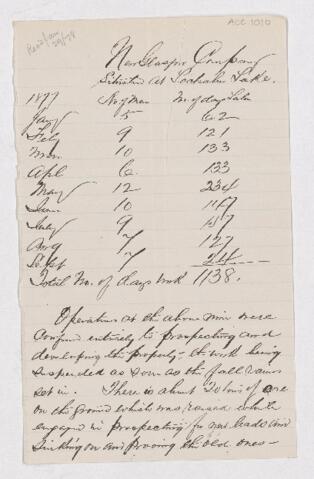 ACC. 1010
New Glasgow Company
Situated at Lochaber Lake.
1877 No of Men No. of days Labor
Jany 5 62
Feby 9 121
Mar 10 133
Apl 6 133
May 12 234
June 10 147
July 9 157
Aug 7 127
Sept 7 24
Total No. of days work 1138.
Operations at the above mine were
confined entirely to prospecting and
developing the property - the work being
suspended as soon as the fall rains
set in. There is about 20 tons of ore
on the ground which was raised while
engaged in prospecting for new leads and
sinking on and proving the old ones -